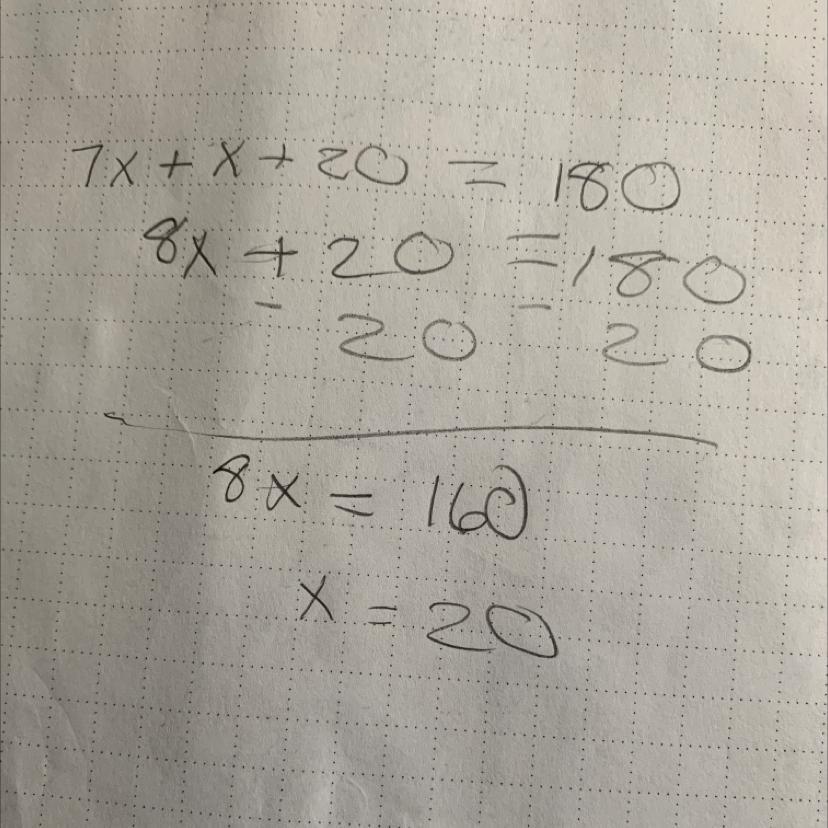 7x + x + 20 = 180
8x + 20 = 180
- 20 - 20
8x = 160
x = 20